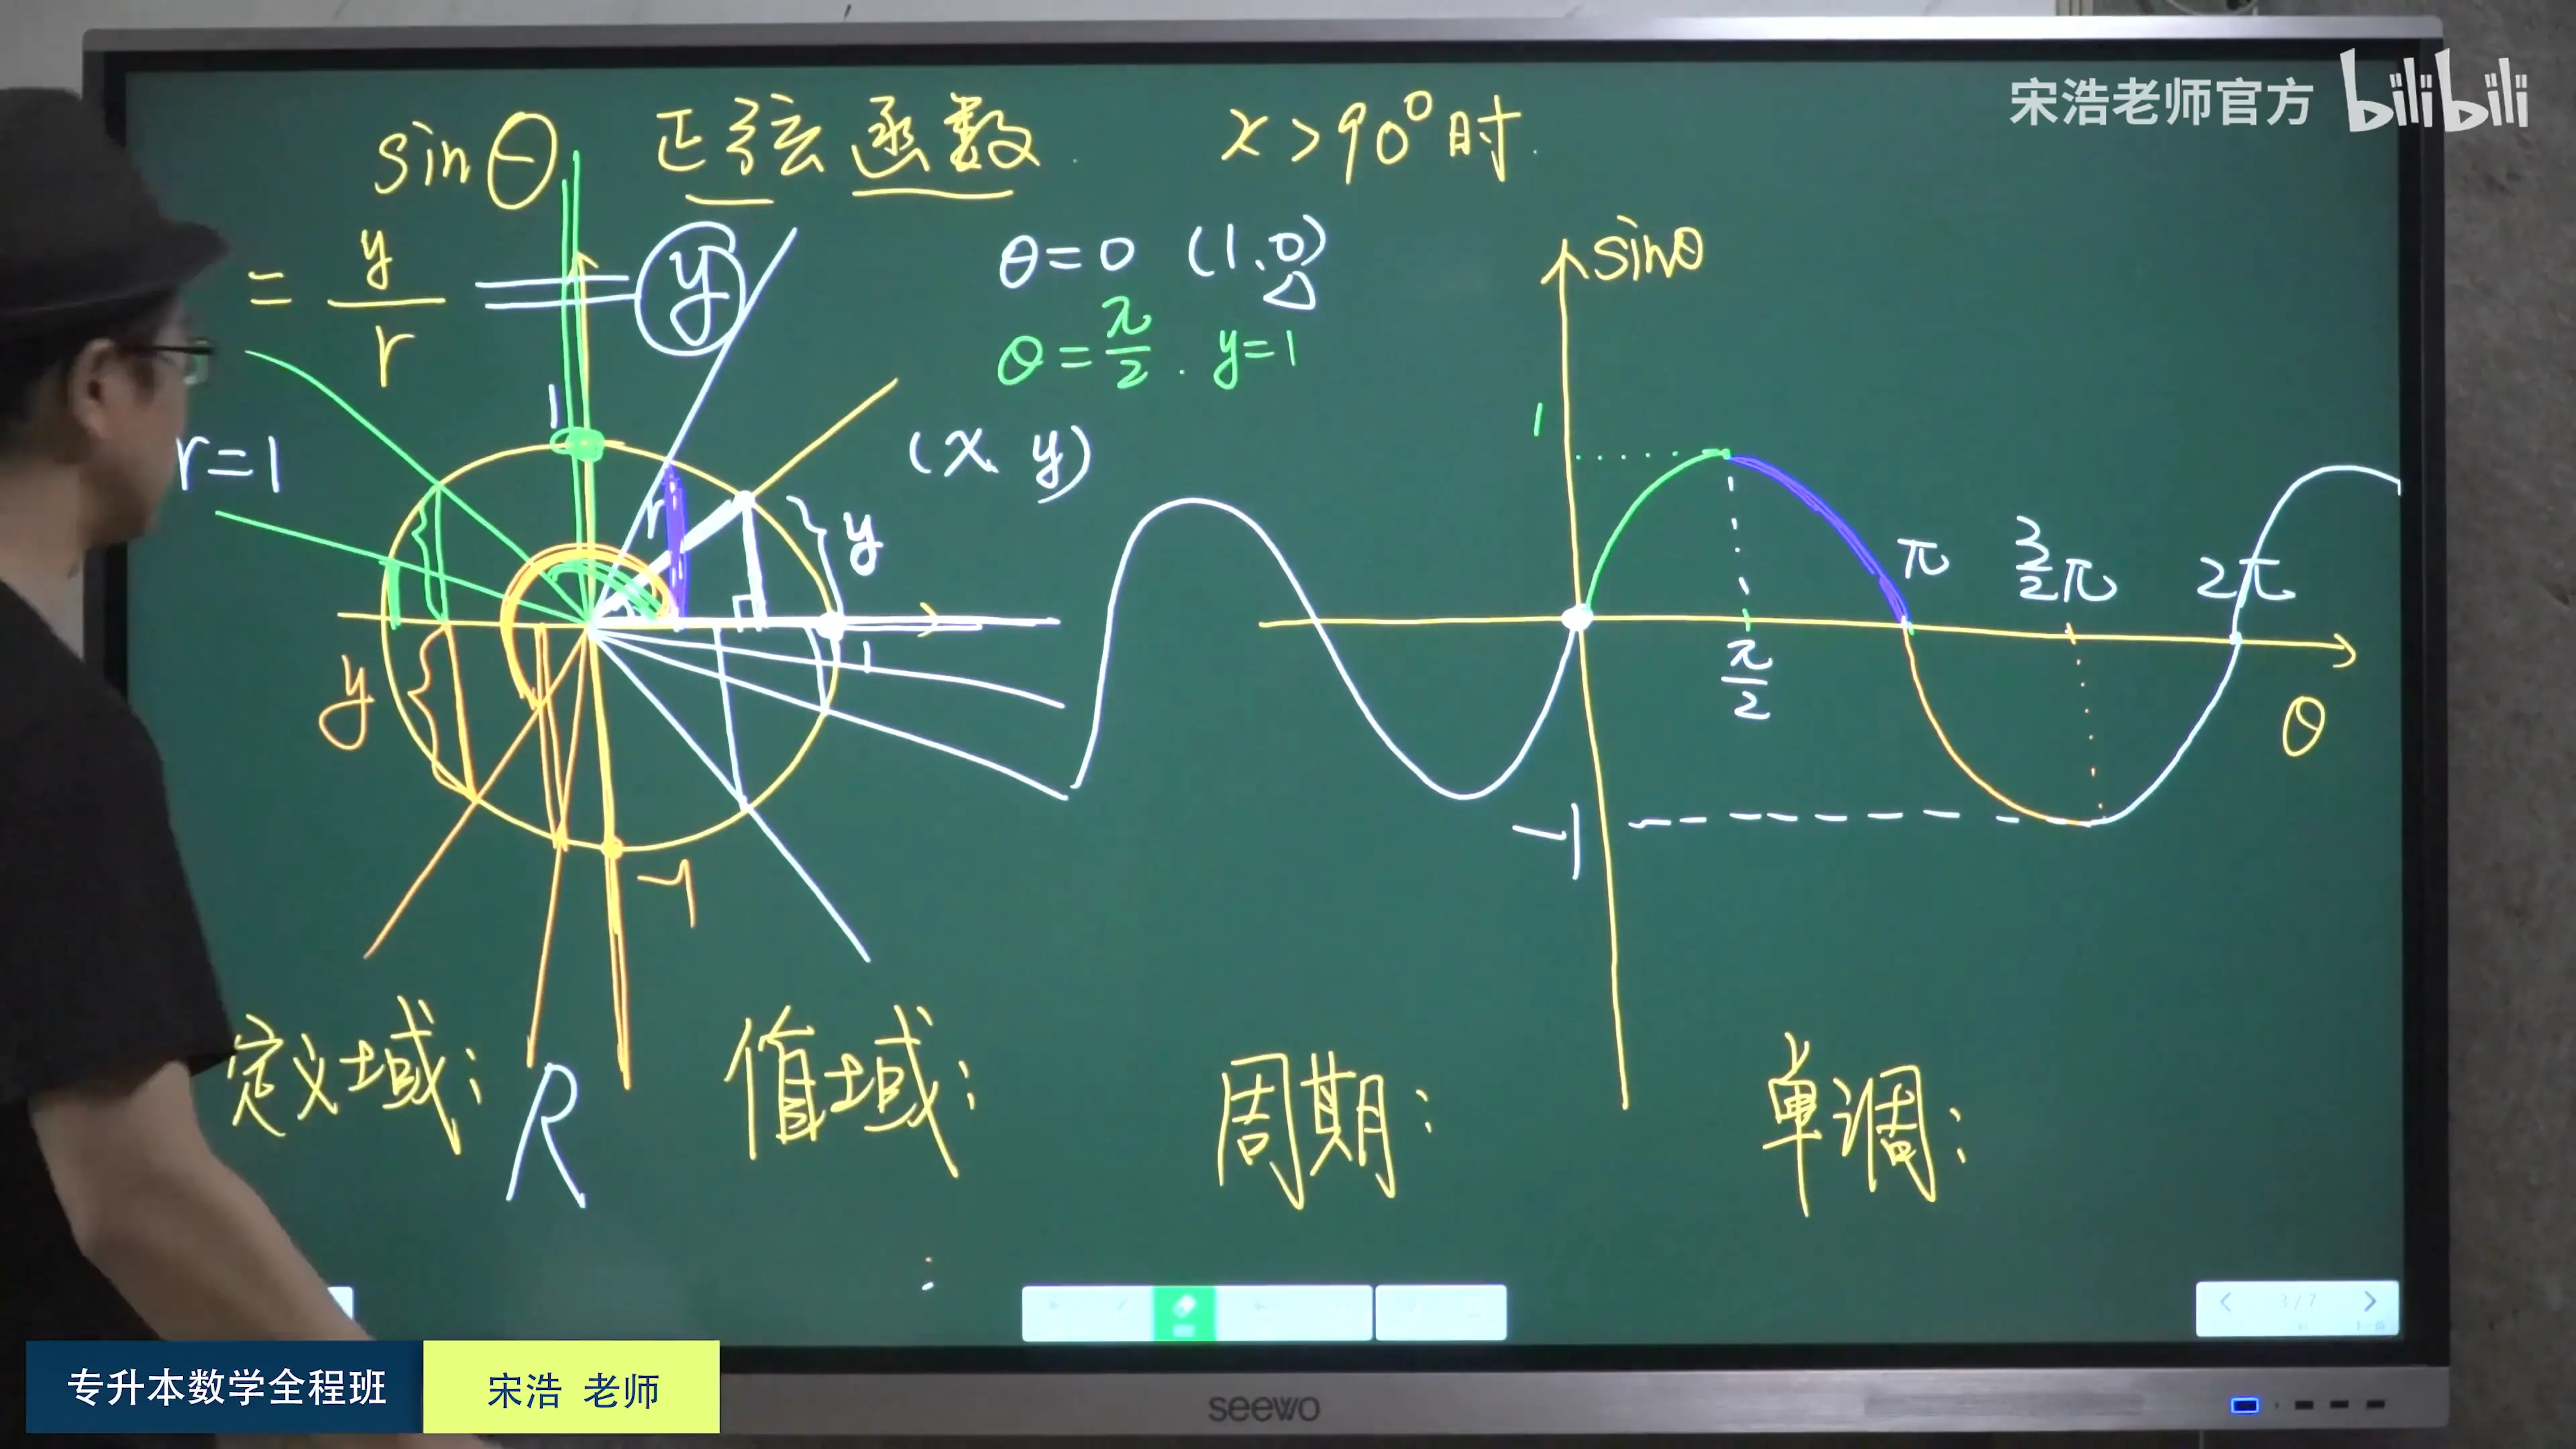 宋浩老师官方 bilibili
sinθ 正弦函数 x>90°时
= y/r = y
r=1
θ=0 (1,0)
θ=π/2. y=1
(x y)
1
r
y
1
y
-1
sinθ
1
π/2
π
3/2π
2π
θ
-1
定义域: R 值域: 周期: 单调:
3/7
专升本数学全程班 宋浩 老师
seewo